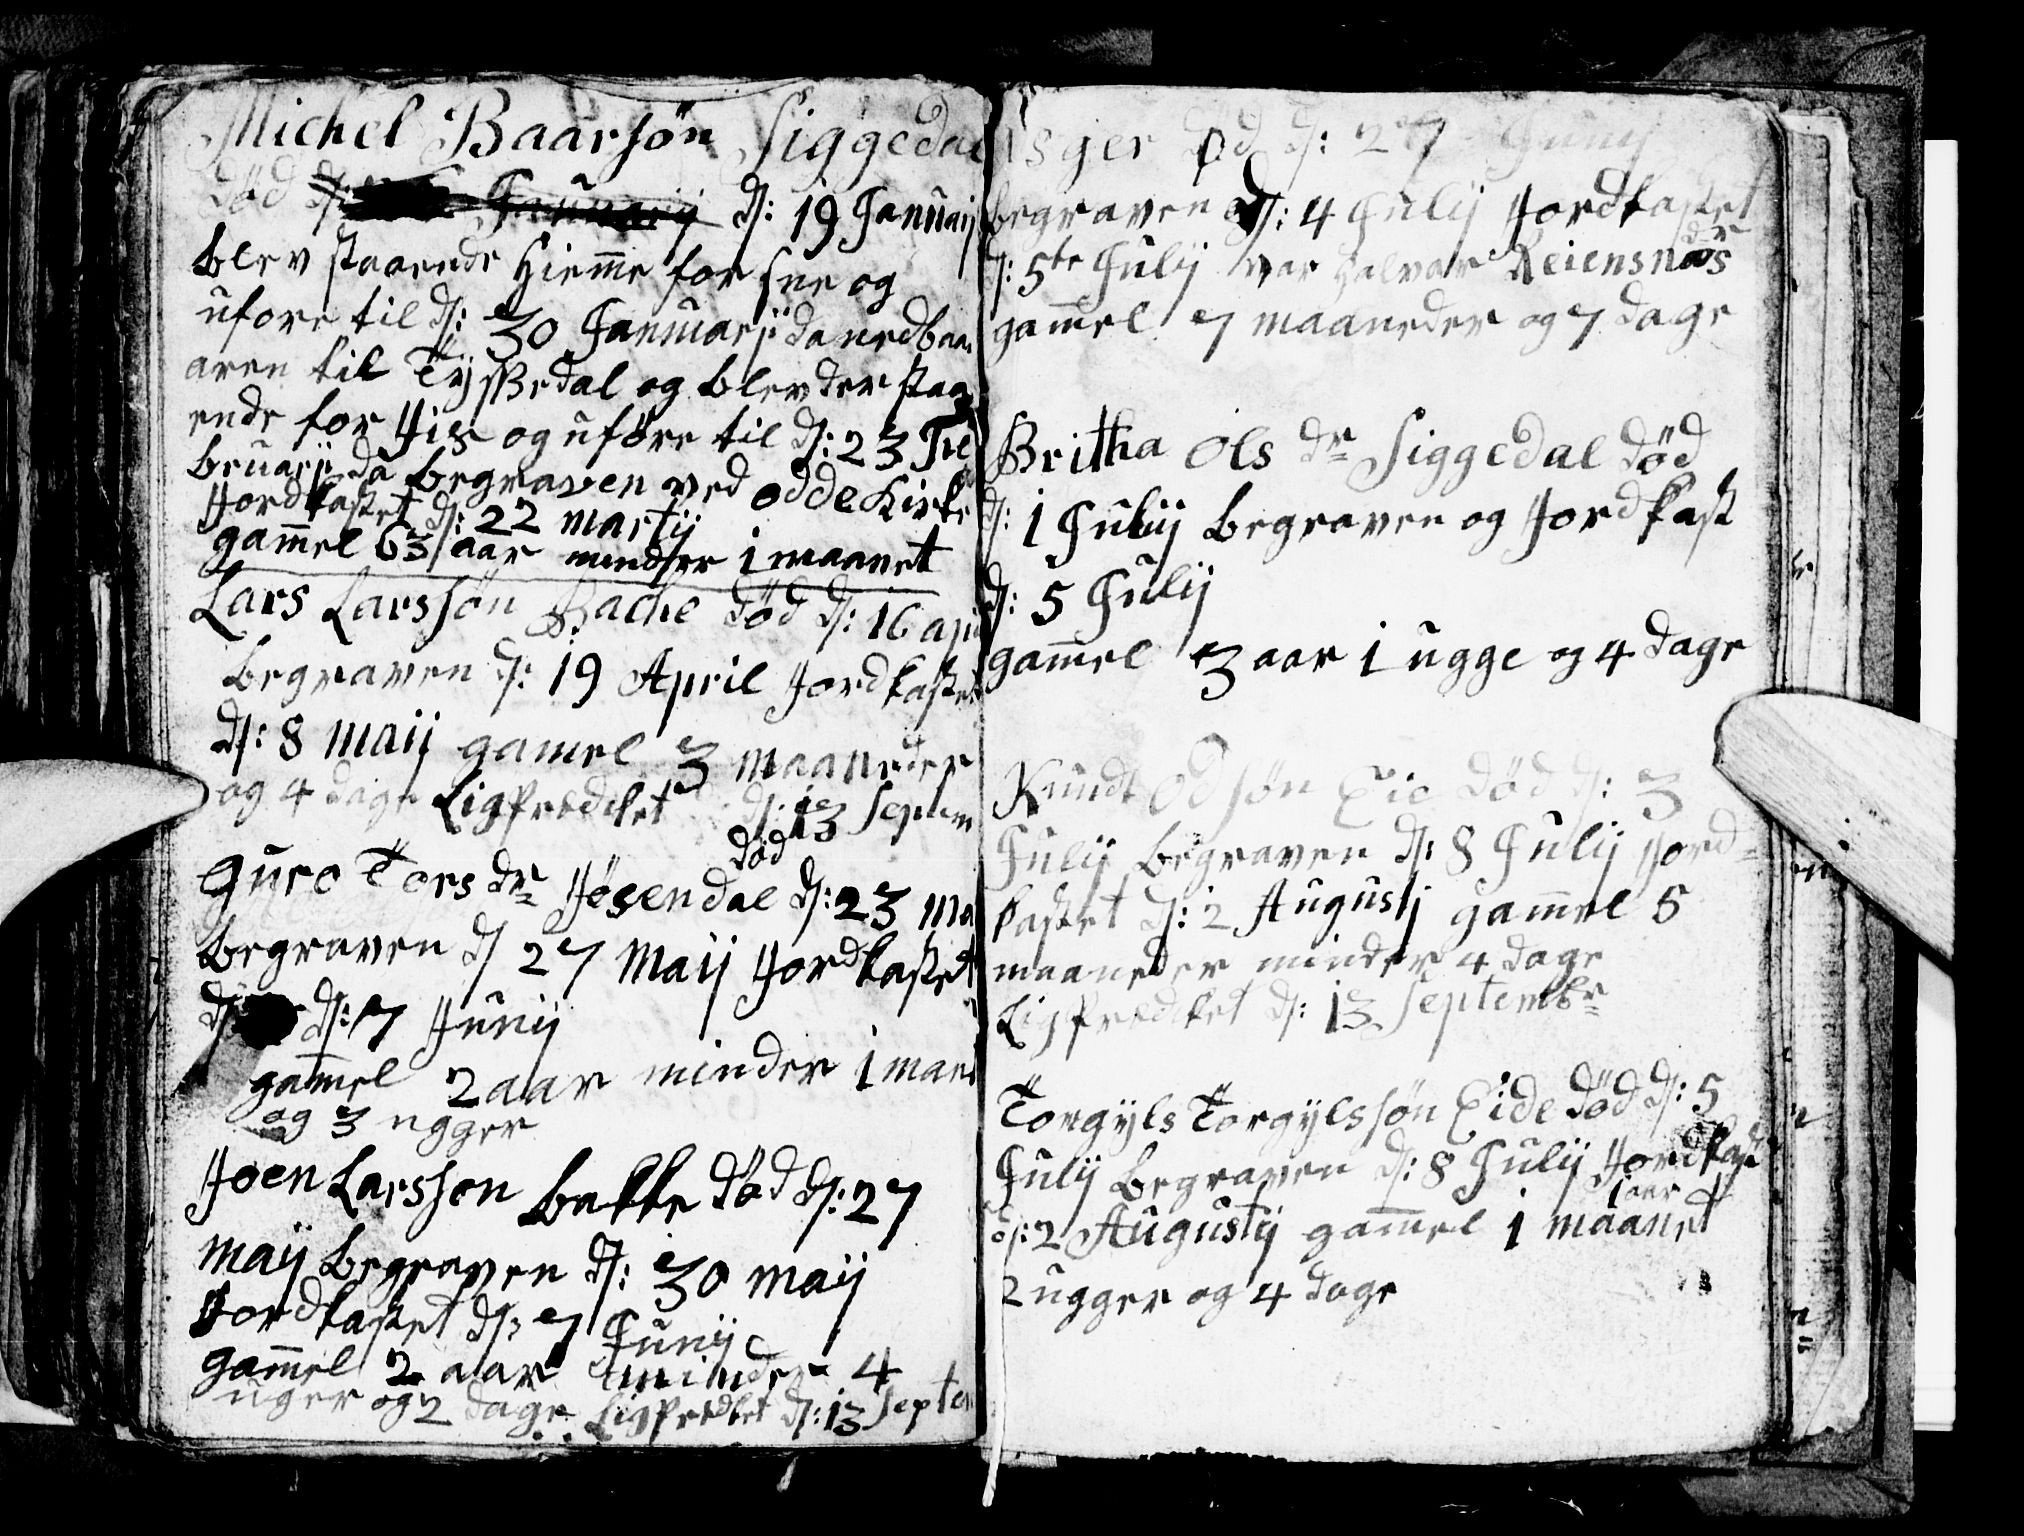 Michel Baarsøn Siggedal
død d: Januarij d: 19 Januarij
blev staaende Hieme for sne og
ufore til d: 30 Januarij da nedbaa
aren til Tyssedal og blev der staa
ende for His og uføre til d: 23 Fe
bruarij da begraven ved odde Kirke
Jordkastet d: 22 martij
gamel 63 aar minder 1 maanet
Lars Larssøn Bache død d: 16 apr
begraven d: 19 April Jordkastet
d: 8 Maij gamel 3 maaneder
og 4 dage Ligprædiket d: 13 Septem
død
Guro Tors dr Jøsendal d: 23 Ma
begraven d 27 Maij Jordkastet
d: 7 Junij
gamel 2 aar minder 1 maa
og 3 ugger
Joen Larsson bakke død d: 27
Maij begraven d: 30 Maij
Jordkastet d: 7 Junij
gamel 2 aar minder 4
uger og 2 dage Ligprædket d: 13 Septem
Død d: 27 Junij
begraven d: 4 Julij Jordkastet
d: 5te Julij var Halvar Reiensnæs
gamel 7 maaneder og 7 dage
Britha Ols dr Siggedal død
d: 1 Julij begraven og Jordkast
d: 5 Julij
gamel 3 aar 1 ugge og 4 dage
Knudt Odsøn Eie død d: 3
Julij begraven d: 8 Julij Jord-
kastet d: 2 Augustj gamel 5
maaneder minder 4 dage
Ligprædiket d: 13 Septembr
Torgyls Torgylssøn Eide død d: 5
Julij begraven d: 8 Julij Jordkast
1 aar
d: 2 Augustij gamel 1 maanet
2 ugger og 4 dage